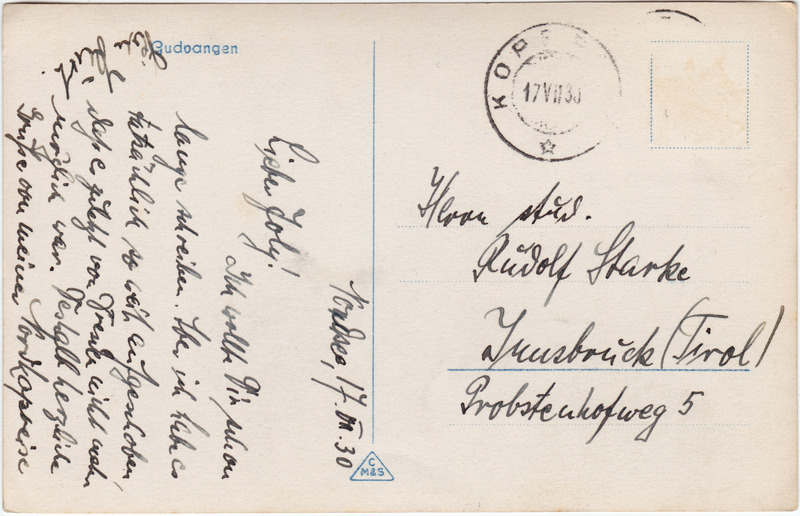 Gudvangen
Nordsee, 17. VII. 30
Lieber Joly!
Ich wollte Dir schon
lange schreiben. Aber ich habe es
tatsächlich so weit aufgeschoben
daß es zuletzt von nicht mehr
möglich war. Deshalb herzliche
Grüße von meiner Nordkapreise
KOPE
17 VII 30
Herrn stud.
Rudolf Starke
Innsbruck (Tirol)
Probstenhofweg 5
C
M&S